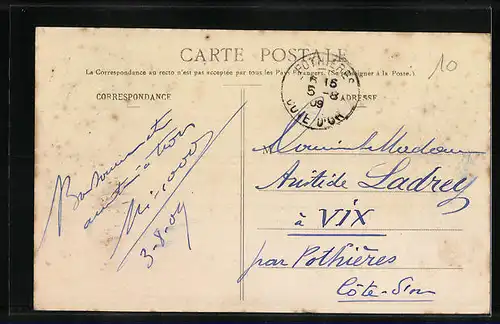 CARTE POSTALE
La Correspondance au recto n'est pas acceptée par tous les Pays Étrangers. (Se renseigner à la Poste.)
CORRESPONDANCE
ADRESSE
10
POTHIÈRES
6 15
5 -8
09
COTE D'OR
3-8-09
Madame
Aristide Ladrey
à VIX
par Pothières
Côte-d'or